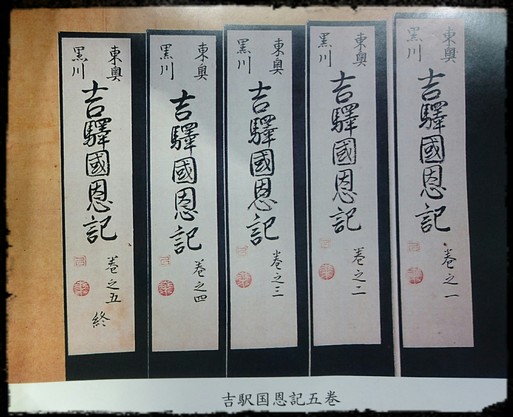 東奥
黒川
吉驛國恩記
巻之一
東奥
黒川
吉驛國恩記
巻之二
東奥
黒川
吉驛國恩記
巻之三
東奥
黒川
吉驛國恩記
巻之四
東奥
黒川
吉驛國恩記
巻之五
終
吉駅国恩記五巻